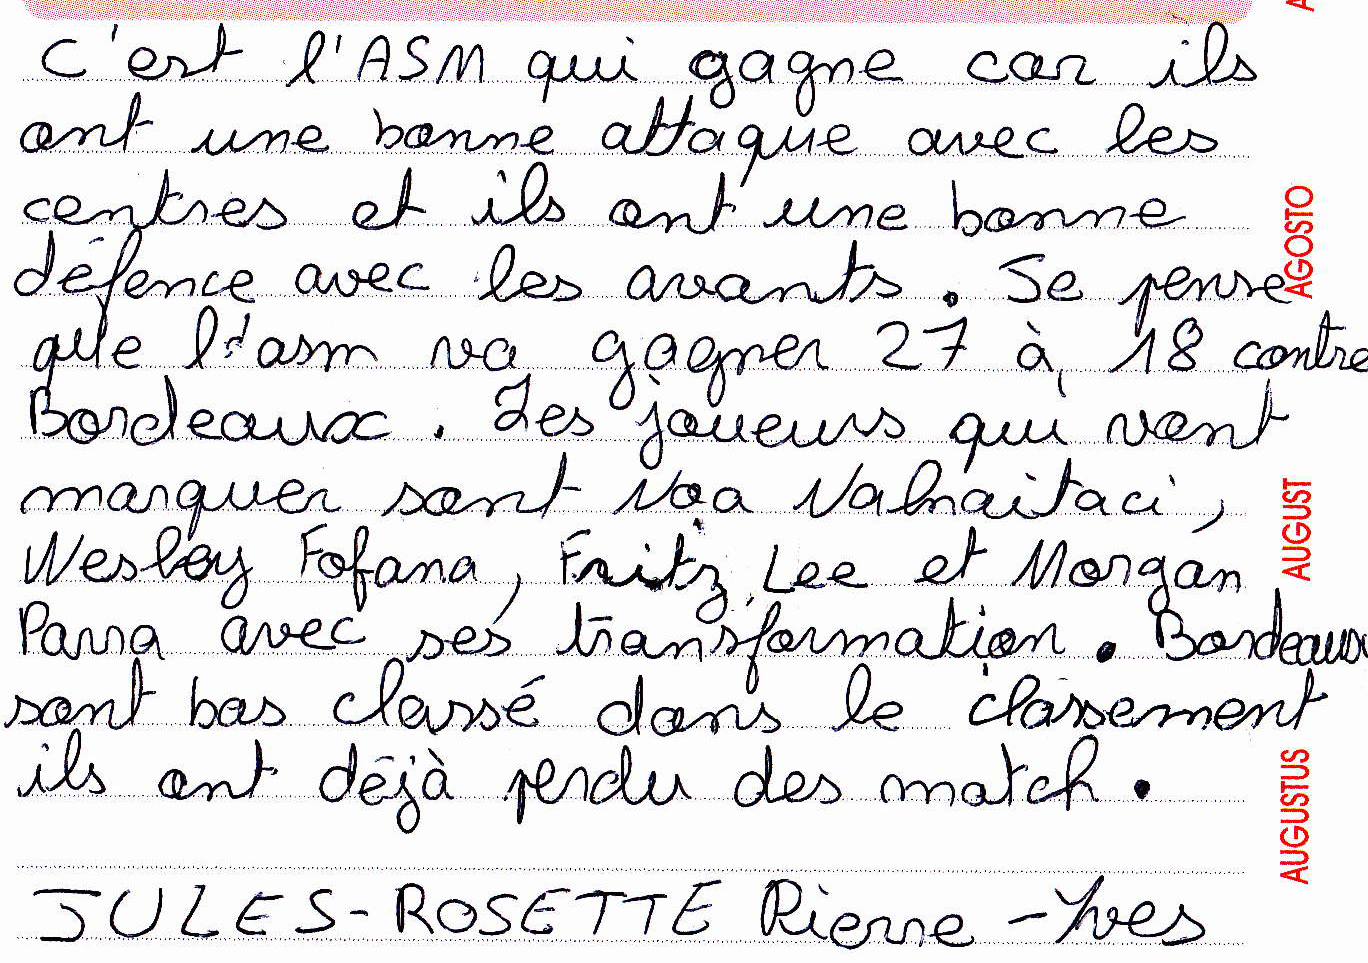 c'est l'ASM qui gagne car ils
ont une bonne attaque avec les
centres et ils ont une bonne
défence avec les avants. Je pense
que l'asm va gagner 27 à 18 contre
Bordeaux. Les joueurs qui vont
marquer sont Noa Nalnaitaci,
Wesley Fofana, Fritz Lee et Morgan
Parra avec ses transformation. Bordeaux
sont bas classé dans le classement
ils ont déjà perdu des match.
JULES-ROSETTE Pierre-Yves
AGOSTO
AUGUST
AUGUSTUS